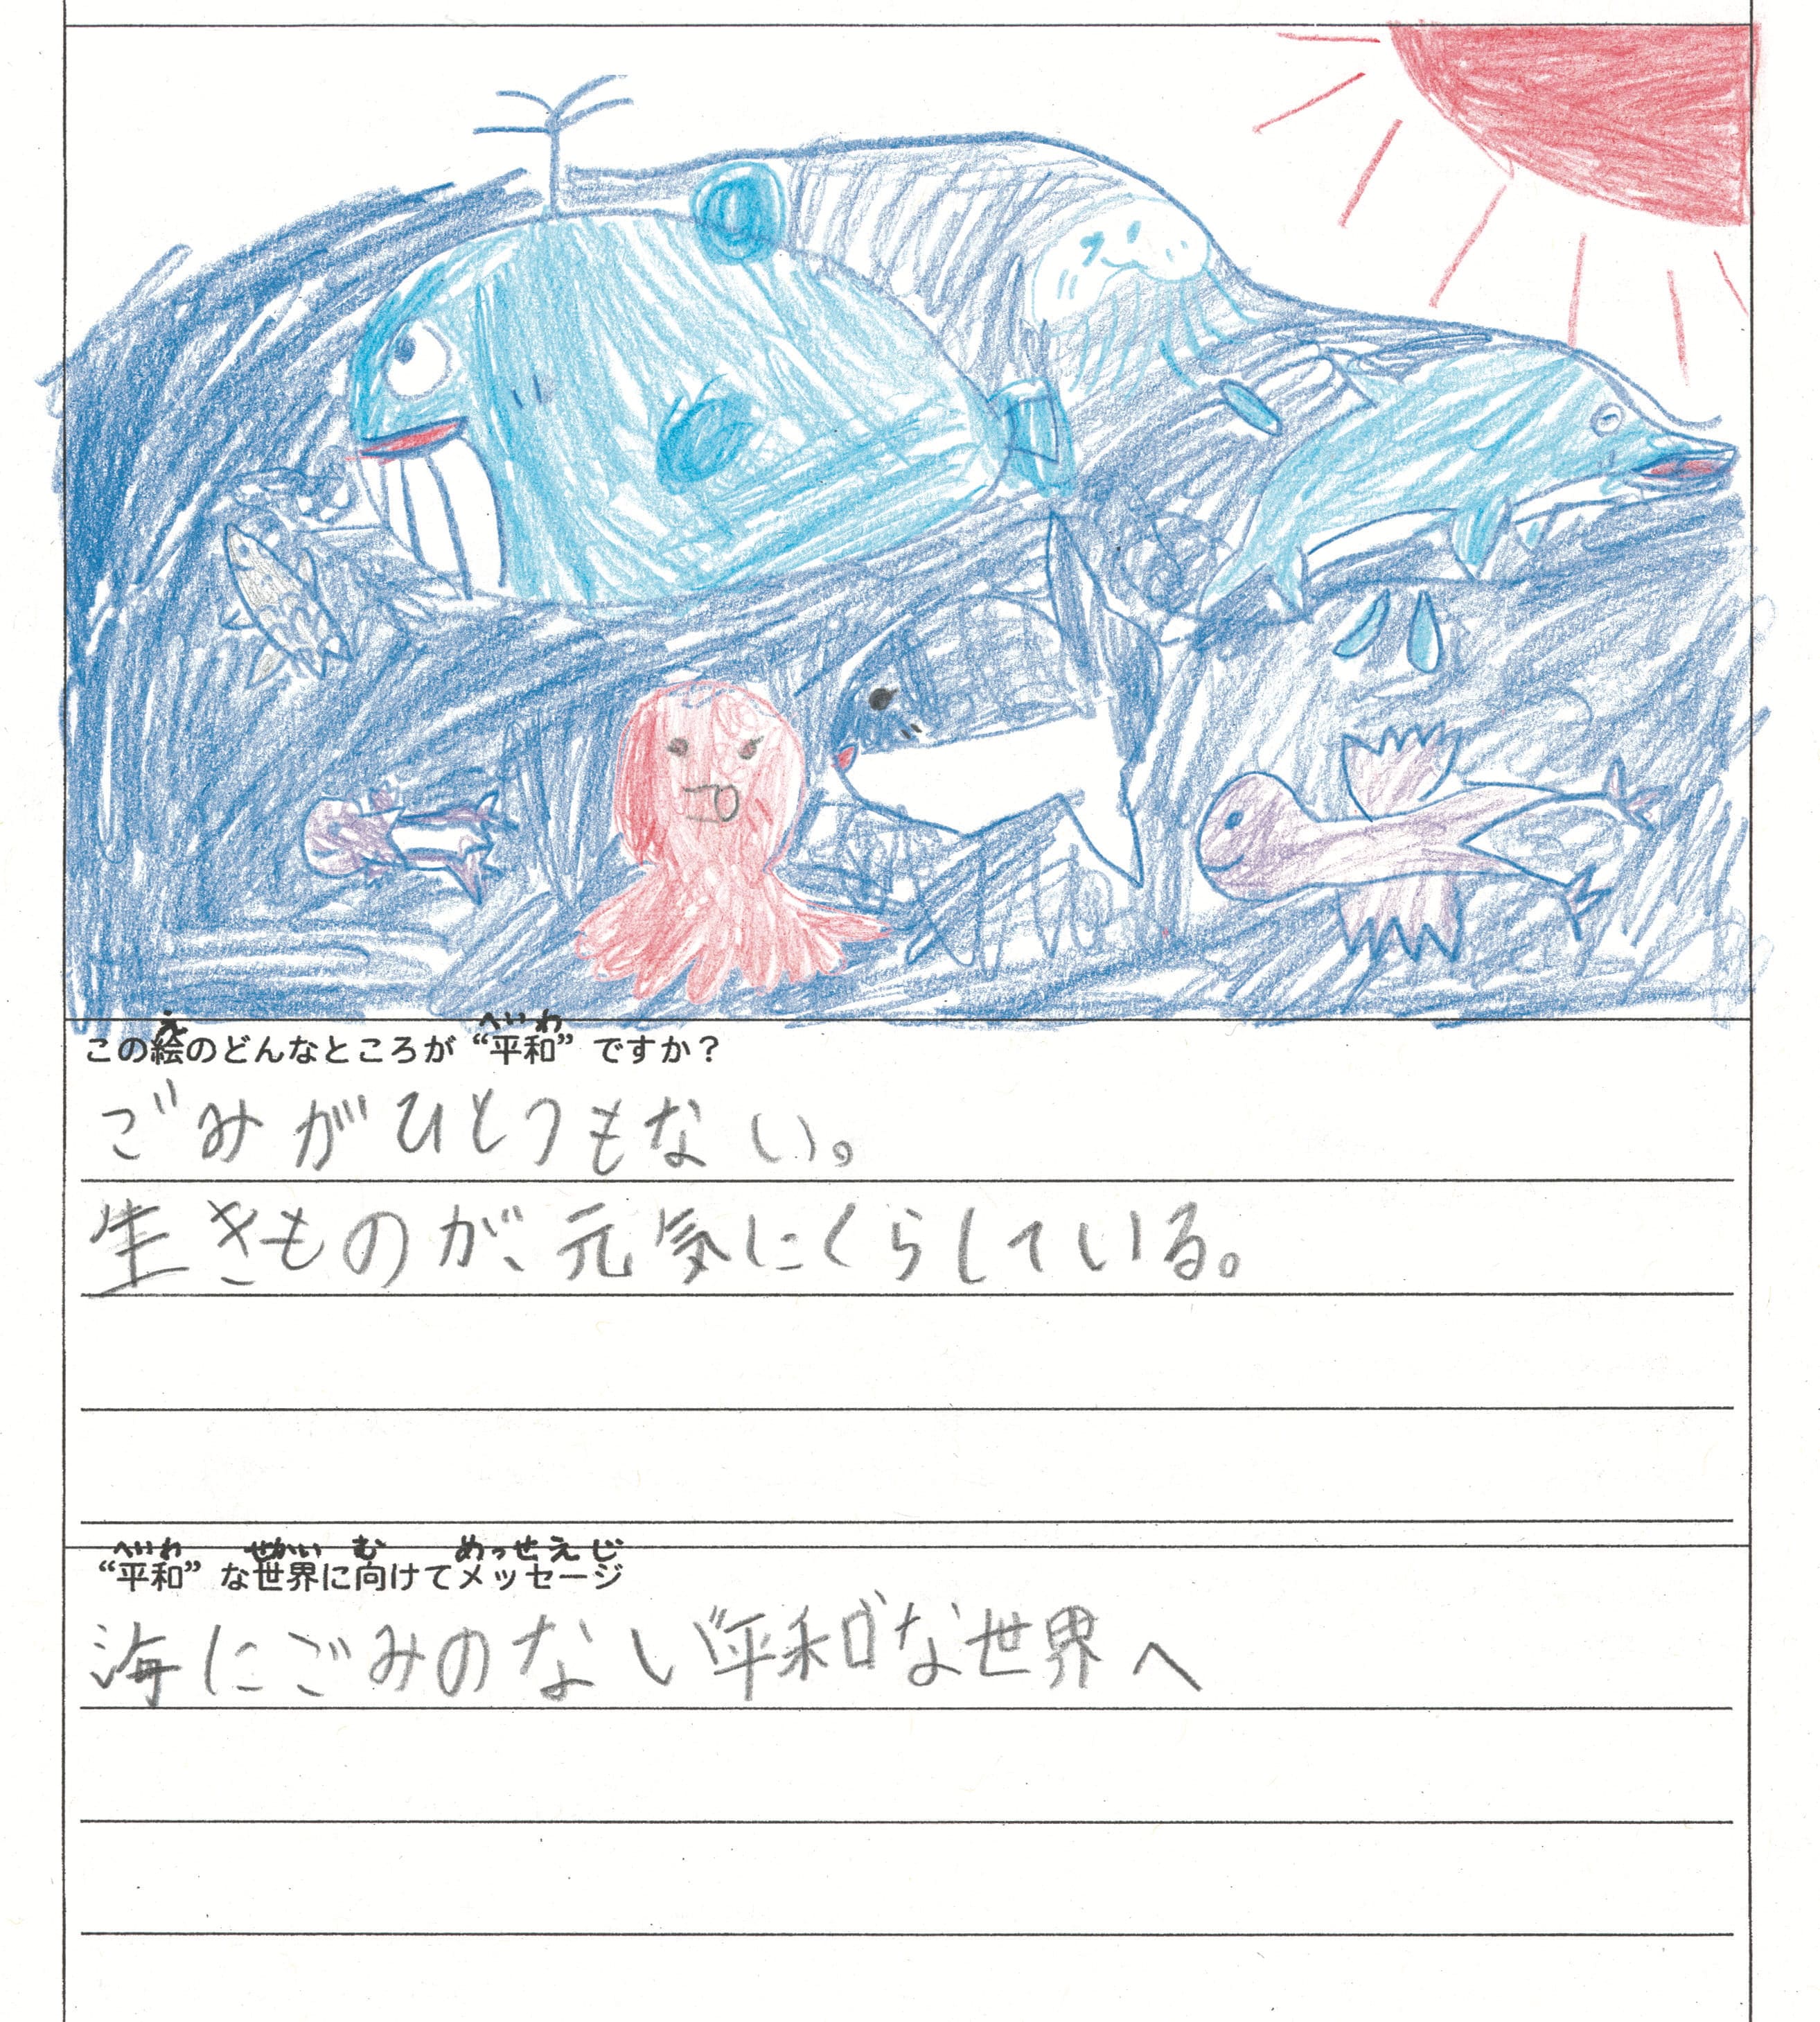 え へいわ
この絵のどんなところが“平和”ですか？
ごみがひとつもない。
生きものが、元気にくらしている。
へいわ せかい む めっせえじ
“平和”な世界に向けてメッセージ
海にごみのない“平和”な世界へ